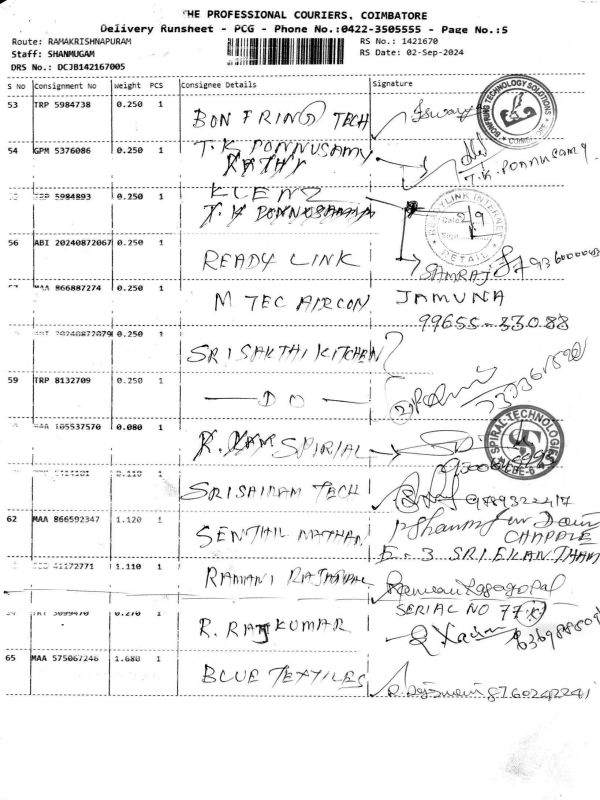 THE PROFESSIONAL COURIERS, COIMBATORE
Delivery Runsheet - PCG - Phone No.:0422-3505555 - Page No.:5
Route: RAMAKRISHNAPURAM RS No.: 1421670
Staff: SHANMUGAM RS Date: 02-Sep-2024
DRS No.: DCJB142167005
S No Consignment No Weight PCS Consignee Details Signature
53 TRP 5984738 0.250 1 BON FRING TECH
BONFRING TECHNOLOGY SOLUTIONS
54 GPM 5376086 0.250 1 T.K. PONNUSAMY
T.K. PONNUCAMY
TRP 5984893 0.250 1 KLENZ
T.K PONNUSAMY
2/9
RETAIL
56 ABI 20240872067 0.250 1 READY LINK
SAMRAJ
MAA 866887274 0.250 1 M TEC AIRCON JAMUNA
99655-33088
20240872079 0.250 1 SRI SAKTHI KITCHEN
59 TRP 8132709 0.250 1 — DO —
MAA 105537570 0.080 1 R. RAM SPIRIAL
SPIRAL TECHNOLOGY
0.110 1 SRISAIRAM TECH
62 MAA 866592347 1.120 1 SENTHIL NATHAN
CHAPPLE
E-3 SRI EKANTHAM
41172771 1.110 1 RAMANI RAJAGOPAL
Ramani Rajagopal
SERIAL NO 77
3099470 0.270 1 R. RAJKUMAR
65 MAA 575067246 1.680 1 BLUE TEXTILES